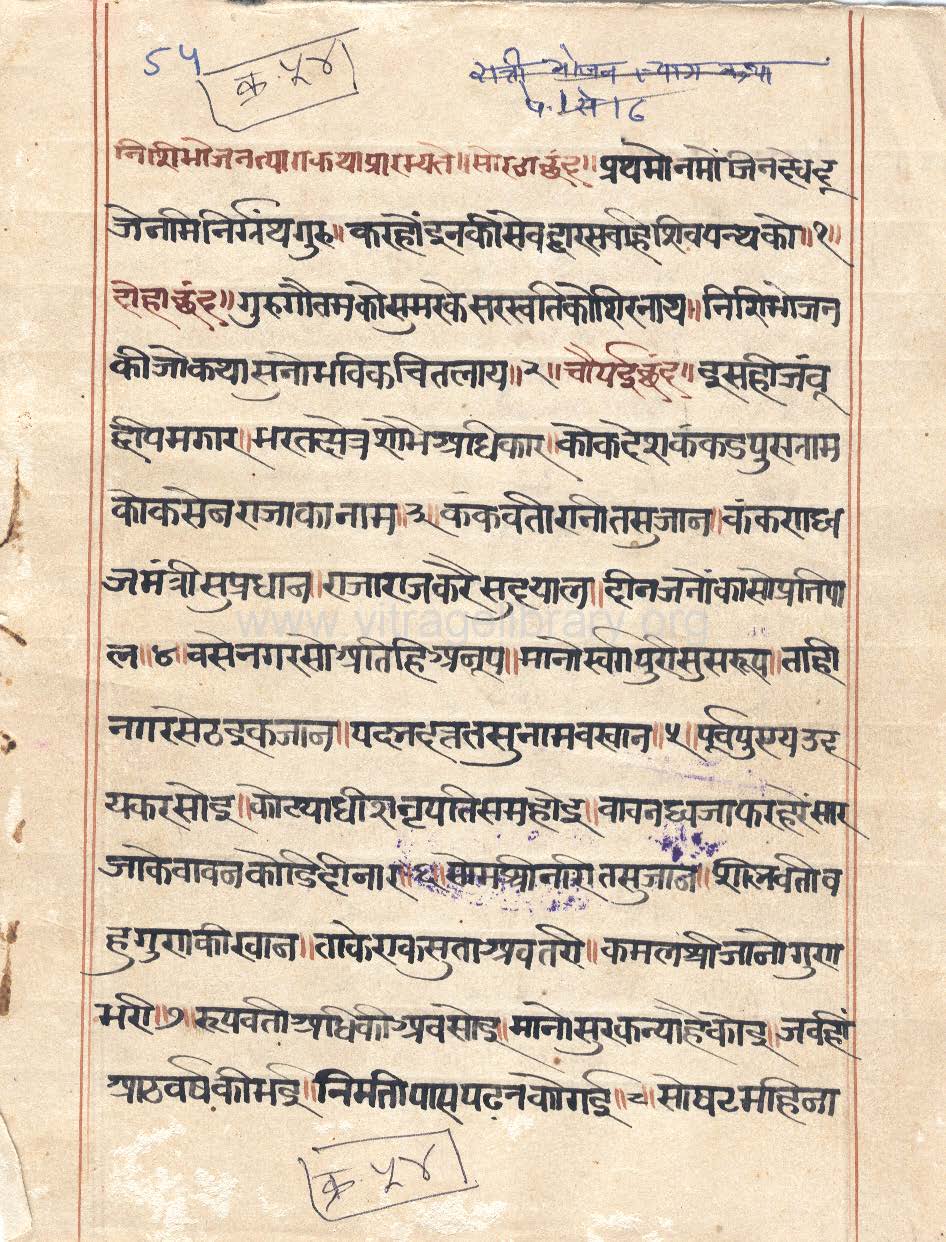 ५५
क. ५४
रात्री भोजन त्याग कथा
प. १ से १८
निशिभोजनत्यागकथाप्रारम्यते॥सोरठाछंद॥प्रथमोनमोंजिनदेव
जेनामिनिर्ग्रंथगुरु॥करहोंइनकीसेवद्वारसवाहिशिवपन्थको॥१॥
दोहाछंद॥गुरुगौतमकोसुमरकेसरस्वतिकोशिरनाय॥निशिभोजन
कीजोकथासुनोभविकचितलाय॥२॥चौपईछंद॥इसहीजंबू
द्वीपमझार॥भरतक्षेत्रशोभैअधिकार॥कोकदेशकंकडपुसनाम
कोकसेनराजाकानाम॥३॥कंकवतीरानीतसुजान॥कंकणध्व
जमंत्रीसुप्रधान॥राजाराजकरैसुदयाल॥दीनजनोंकासोप्रतिपा
ल॥४॥वसेनगरसोअतिहिअनूप॥मानोस्वर्गपुरीसुसरूप॥ताही
नगरसेठइकजान॥पदमदत्ततसुनामवखान॥५॥पूर्वपुण्यउद
यकरसोइ॥कोट्याधीशनृपतिसमहोइ॥वावनध्वजाफरहरेंसार
जाकेवावनकोडिदीनार॥६॥सोमश्रीनारीतसुजान॥शीलवतीव
हुगुणकीखान॥ताकेएकसुताअवतरी॥कमलश्रीजानोगुण
भरी॥७॥रूपवतीअधिकीअवसोइ॥मानोसुरकन्याहैकोइ॥जवहीं
आठवर्षकीभई॥निमतीपासपढनकोगई॥८॥सोषटमहिना
क. ५४
www.vitragelibrary.org